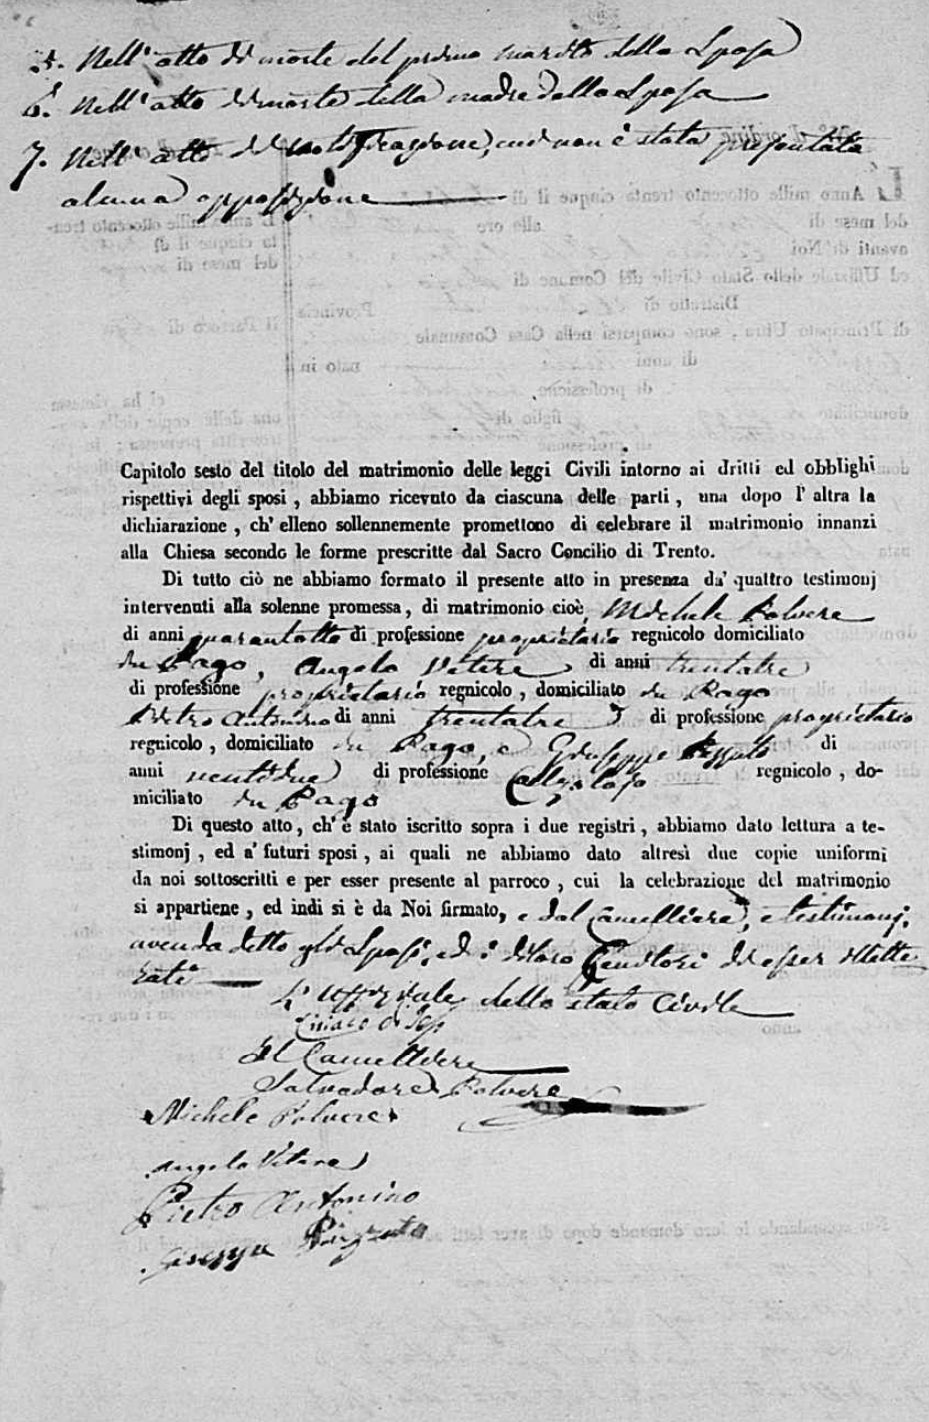 5. Nell'atto di morte del primo marito della Sposa
6. Nell'atto di morte della madre della Sposa
7. Nell'atto di notificazione, cui non è stata presentata
alcuna opposizione
Capitolo sesto del titolo del matrimonio delle leggi Civili intorno ai dritti ed obblighi
rispettivi degli sposi, abbiamo ricevuto da ciascuna delle parti, una dopo l'altra la
dichiarazione, ch'elleno sollennemente promettono di celebrare il matrimonio innanzi
alla Chiesa secondo le forme prescritte dal Sacro Concilio di Trento.
Di tutto ciò ne abbiamo formato il presente atto in presenza da' quattro testimonj
intervenuti alla solenne promessa, di matrimonio cioè, Michele Polvere
di anni quarantotto di professione proprietario regnicolo domiciliato
in Pago, Angelo Vetere di anni trentatre
di professione proprietario regnicolo, domiciliato in Pago
Pietro Antonino di anni trentatre di professione proprietario
regnicolo, domiciliato in Pago, e Giuseppe di
anni ventidue di professione Calzolajo regnicolo, do-
miciliato in Pago
Di questo atto, ch'è stato iscritto sopra i due registri, abbiamo dato lettura a te-
stimonj, ed a' futuri sposi, ai quali ne abbiamo dato altresì due copie uniformi
da noi sottoscritti e per esser presente al parroco, cui la celebrazione del matrimonio
si appartiene, ed indi si è da Noi firmato, e dal Cancelliere, e testimonj,
avendo detto gli Sposi, ed i di loro Genitori di esser illette
rati
L'Uffiziale dello stato Civile
Il Cancelliere
Salvadore Polvere
Michele Polvere
Angelo Vetere
Pietro Antonino